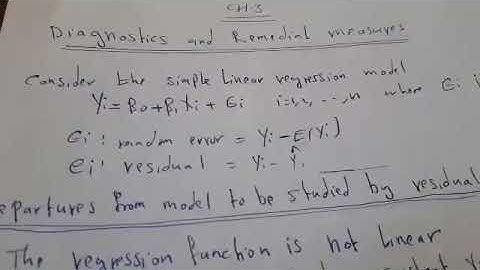 CH-3
Diagnostics and Remedial measures
Consider the simple linear regression model
Yi = β0 + β1 Xi + εi i=1,2, ..., n where εi
εi : random error = Yi - E(Yi)
ei : residual = Yi - Ŷi
epartures from model to be studied by residual
The regression function is not linear